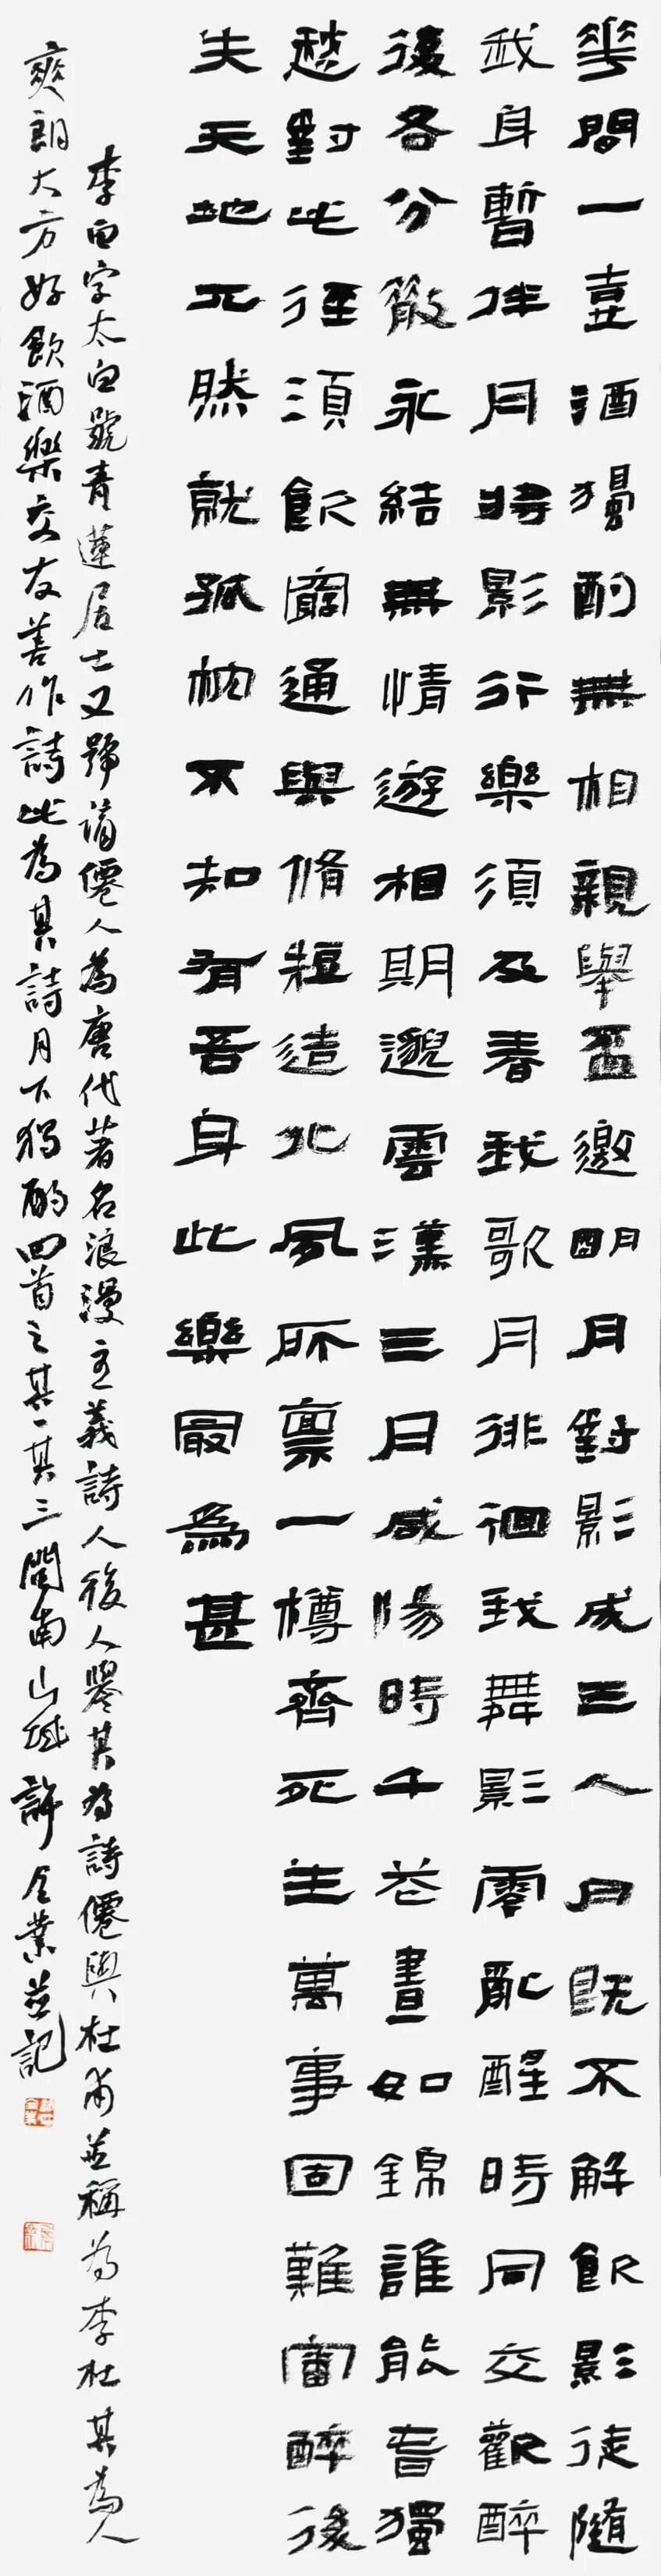 花間一壺酒獨酌無相親舉盃邀明月對影成三人月既不解飲影徒隨
我身暫伴月將影行樂須及春我歌月徘徊我舞影零亂醒時同交歡醉
後各分散永結無情遊相期邈雲漢三月咸陽時千花晝如錦誰能春獨
愁對此徑須飲窮通與脩短造化夙所稟一樽齊死生萬事固難審醉後
失天地兀然就孤枕不知有吾身此樂最為甚
李白字太白號青蓮居士又號謫僊人為唐代著名浪漫主義詩人後人譽其為詩僊與杜甫並稱為李杜其為人
爽朗大方好飲酒樂交友善作詩此為其詩月下獨酌四首之其一其三閩南山城許業並記